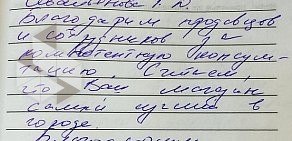 Благодарим продавцов
и сотрудников за
компетентную консуль-
тацию. Считаем,
что Ваш магазин
самый лучший в
городе